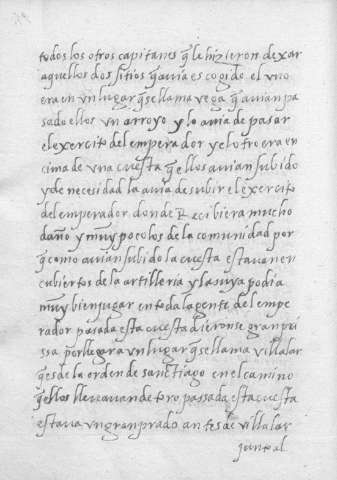 todos los otros capitanes q̃ le hizieron dexar
aquellos dos sitios q̃ avia escogido el vno
era en vn lugar q̃ se llama vega q̃ avian pa
sado ellos vn arroyo y lo avia de pasar
el exercito del emperador y el otro era en
cima de vna cuesta q̃ ellos avian subido
y de necesidad la avia de subir el exercito
del emperador donde Recibiera mucho
daño y muy poco los de la comunidad por
q̃ como avian subido la cuesta estavan en
cubiertos de la artilleria y la suya podia
muy bien jugar en toda la gente del empe
rador pasada esta cuesta dieronse gran pri
ssa por llegar a vn lugar q̃ se llama villalar
q̃ es de la orden de sanctiago en el camino
q̃ ellos llevavan de toro passada esta cuesta
estava vn gran prado antes de villalar
junto al